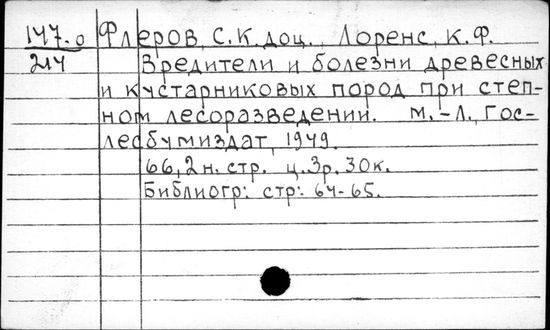 147-о Флеров, С.К. доц., Лоренс, К.Ф.
214 Вредители и болезни древесных
и кустарниковых пород при степ-
ном лесоразведении. М.-Л., Гос-
лесбумиздат, 1949.
66,2 н. стр. ц. 3р. 30к.
Библиогр: стр: 64-65.